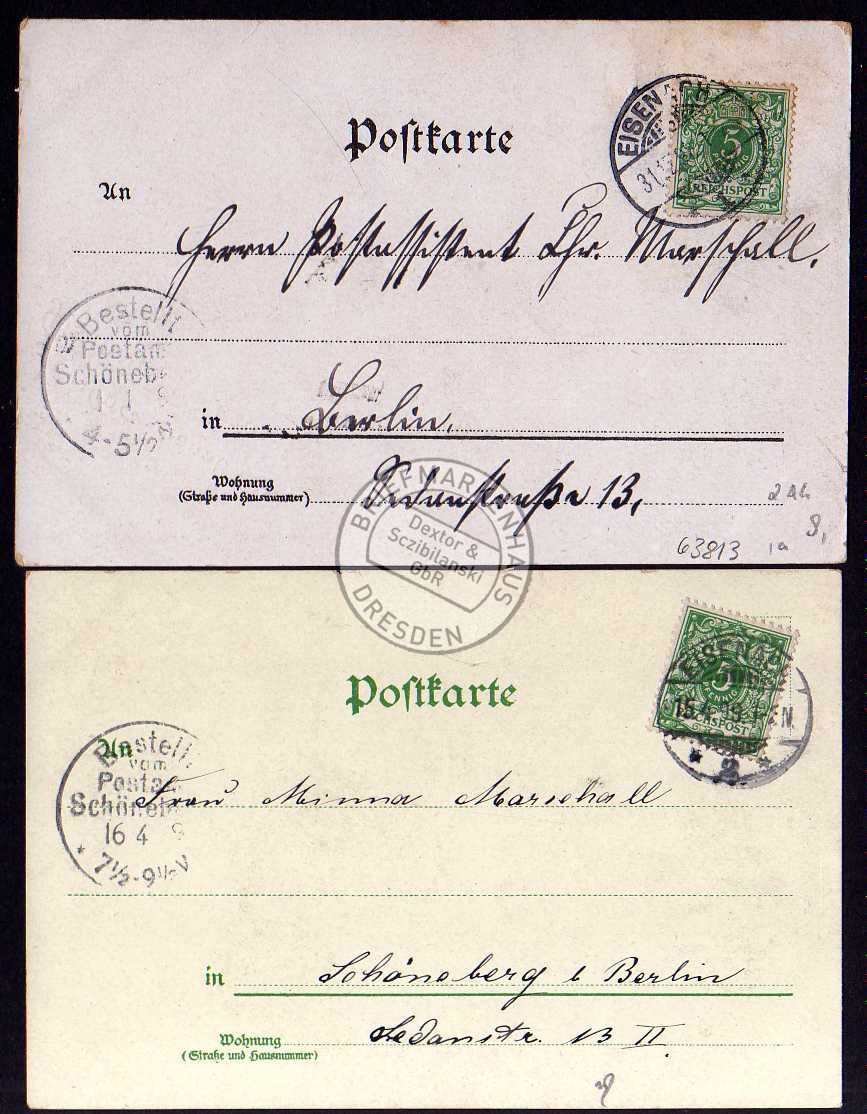 Postkarte
EISENACH
5
REICHSPOST
An
Herrn Postassistent Chr. Marschall.
Bestellt
vom
Postam
Schöneb
1 1
4-5½
in Berlin.
Wohnung
(Straße und Hausnummer)
Sedanstraße 13,
2 Ak
63813
1a
BRIEFMARKENHAUS
Dextor &
Sczibilanski
GbR
DRESDEN
Postkarte
EISENAC
5
PFENNIG
REICHSPOST
15.4.
An
Bestellt
vom
Posta
Schöneb
16 4
7½-9½V
Frau Minna Marschall
in Schöneberg b Berlin
Wohnung
(Straße und Hausnummer)
Sedanstr. 13 II